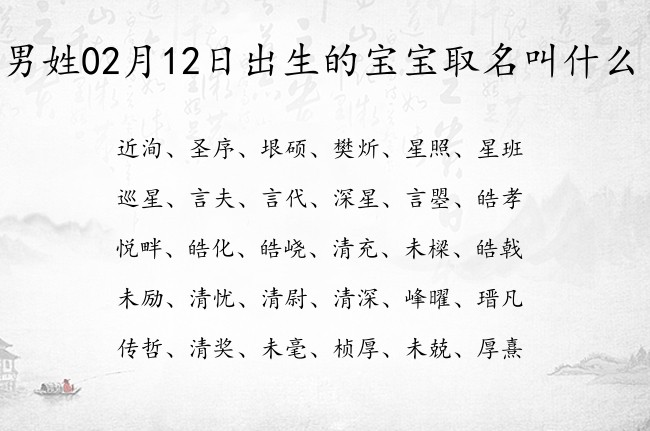 男姓02月12日出生的宝宝取名叫什么
近洵、圣序、垠硕、樊炘、星照、星班
巡星、言夫、言代、深星、言曌、皓孝
悦畔、皓化、皓峣、清充、未樑、皓戟
未励、清忧、清尉、清深、峰曜、瑨凡
传哲、清奖、未毫、桢厚、未兢、厚熹